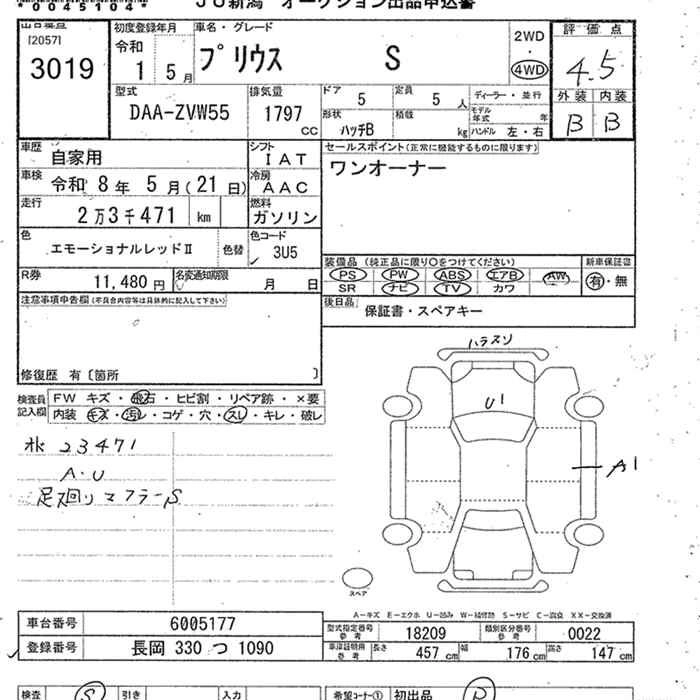 *00451 04*
JU新潟 オークション出品申込書
[2057]
3019
初度登録年月
令和
1 5月
車名・グレード
プリウス S
2WD
4WD
評価点
4.5
外装 内装
B B
型式
DAA-ZVW55
排気量
1797
CC
ドア
5
定員
5 人
ディーラー・並行
形状
ハッチB
積載
kg
モデル年式 年
ハンドル 左・右
車歴
自家用
シフト
IAT
セールスポイント(正常に機能するものに限ります)
ワンオーナー
車検
令和 8年 5月(21日)
冷房
AAC
走行
2万3千471 km
燃料
ガソリン
色
エモーショナルレッドⅡ
色替
色コード
3U5
装備品 (純正品に限り○をつけてください)
新車保証書
PS PW ABS エアB AW
有・無
SR ナビ TV カワ
R券
11,480円
名変通知期限
月 日
後日品
保証書・スペアキー
注意事項申告欄(不具合内容等は具体的に記入して下さい)
修復歴 有〔箇所 〕
検査員
記入欄
FW キズ・飛石・ヒビ割・リペア跡・×要
内装 キズ・汚レ・コゲ・穴・スレ・キレ・破レ
23471
A・U
足廻リマフラーS
U1
A1
スペア
A―キズ E―エクボ U―凹み W―補修跡 S―サビ C―腐食 XX―交換済
車台番号
6005177
登録番号
長岡 330 つ 1090
型式指定番号
参考
18209
類別区分番号
参考
0022
車庫証明用
参考
長さ
457 cm
幅
176 cm
高さ
147 cm
検査
S
引き
入力
希望コーナー①
初出品